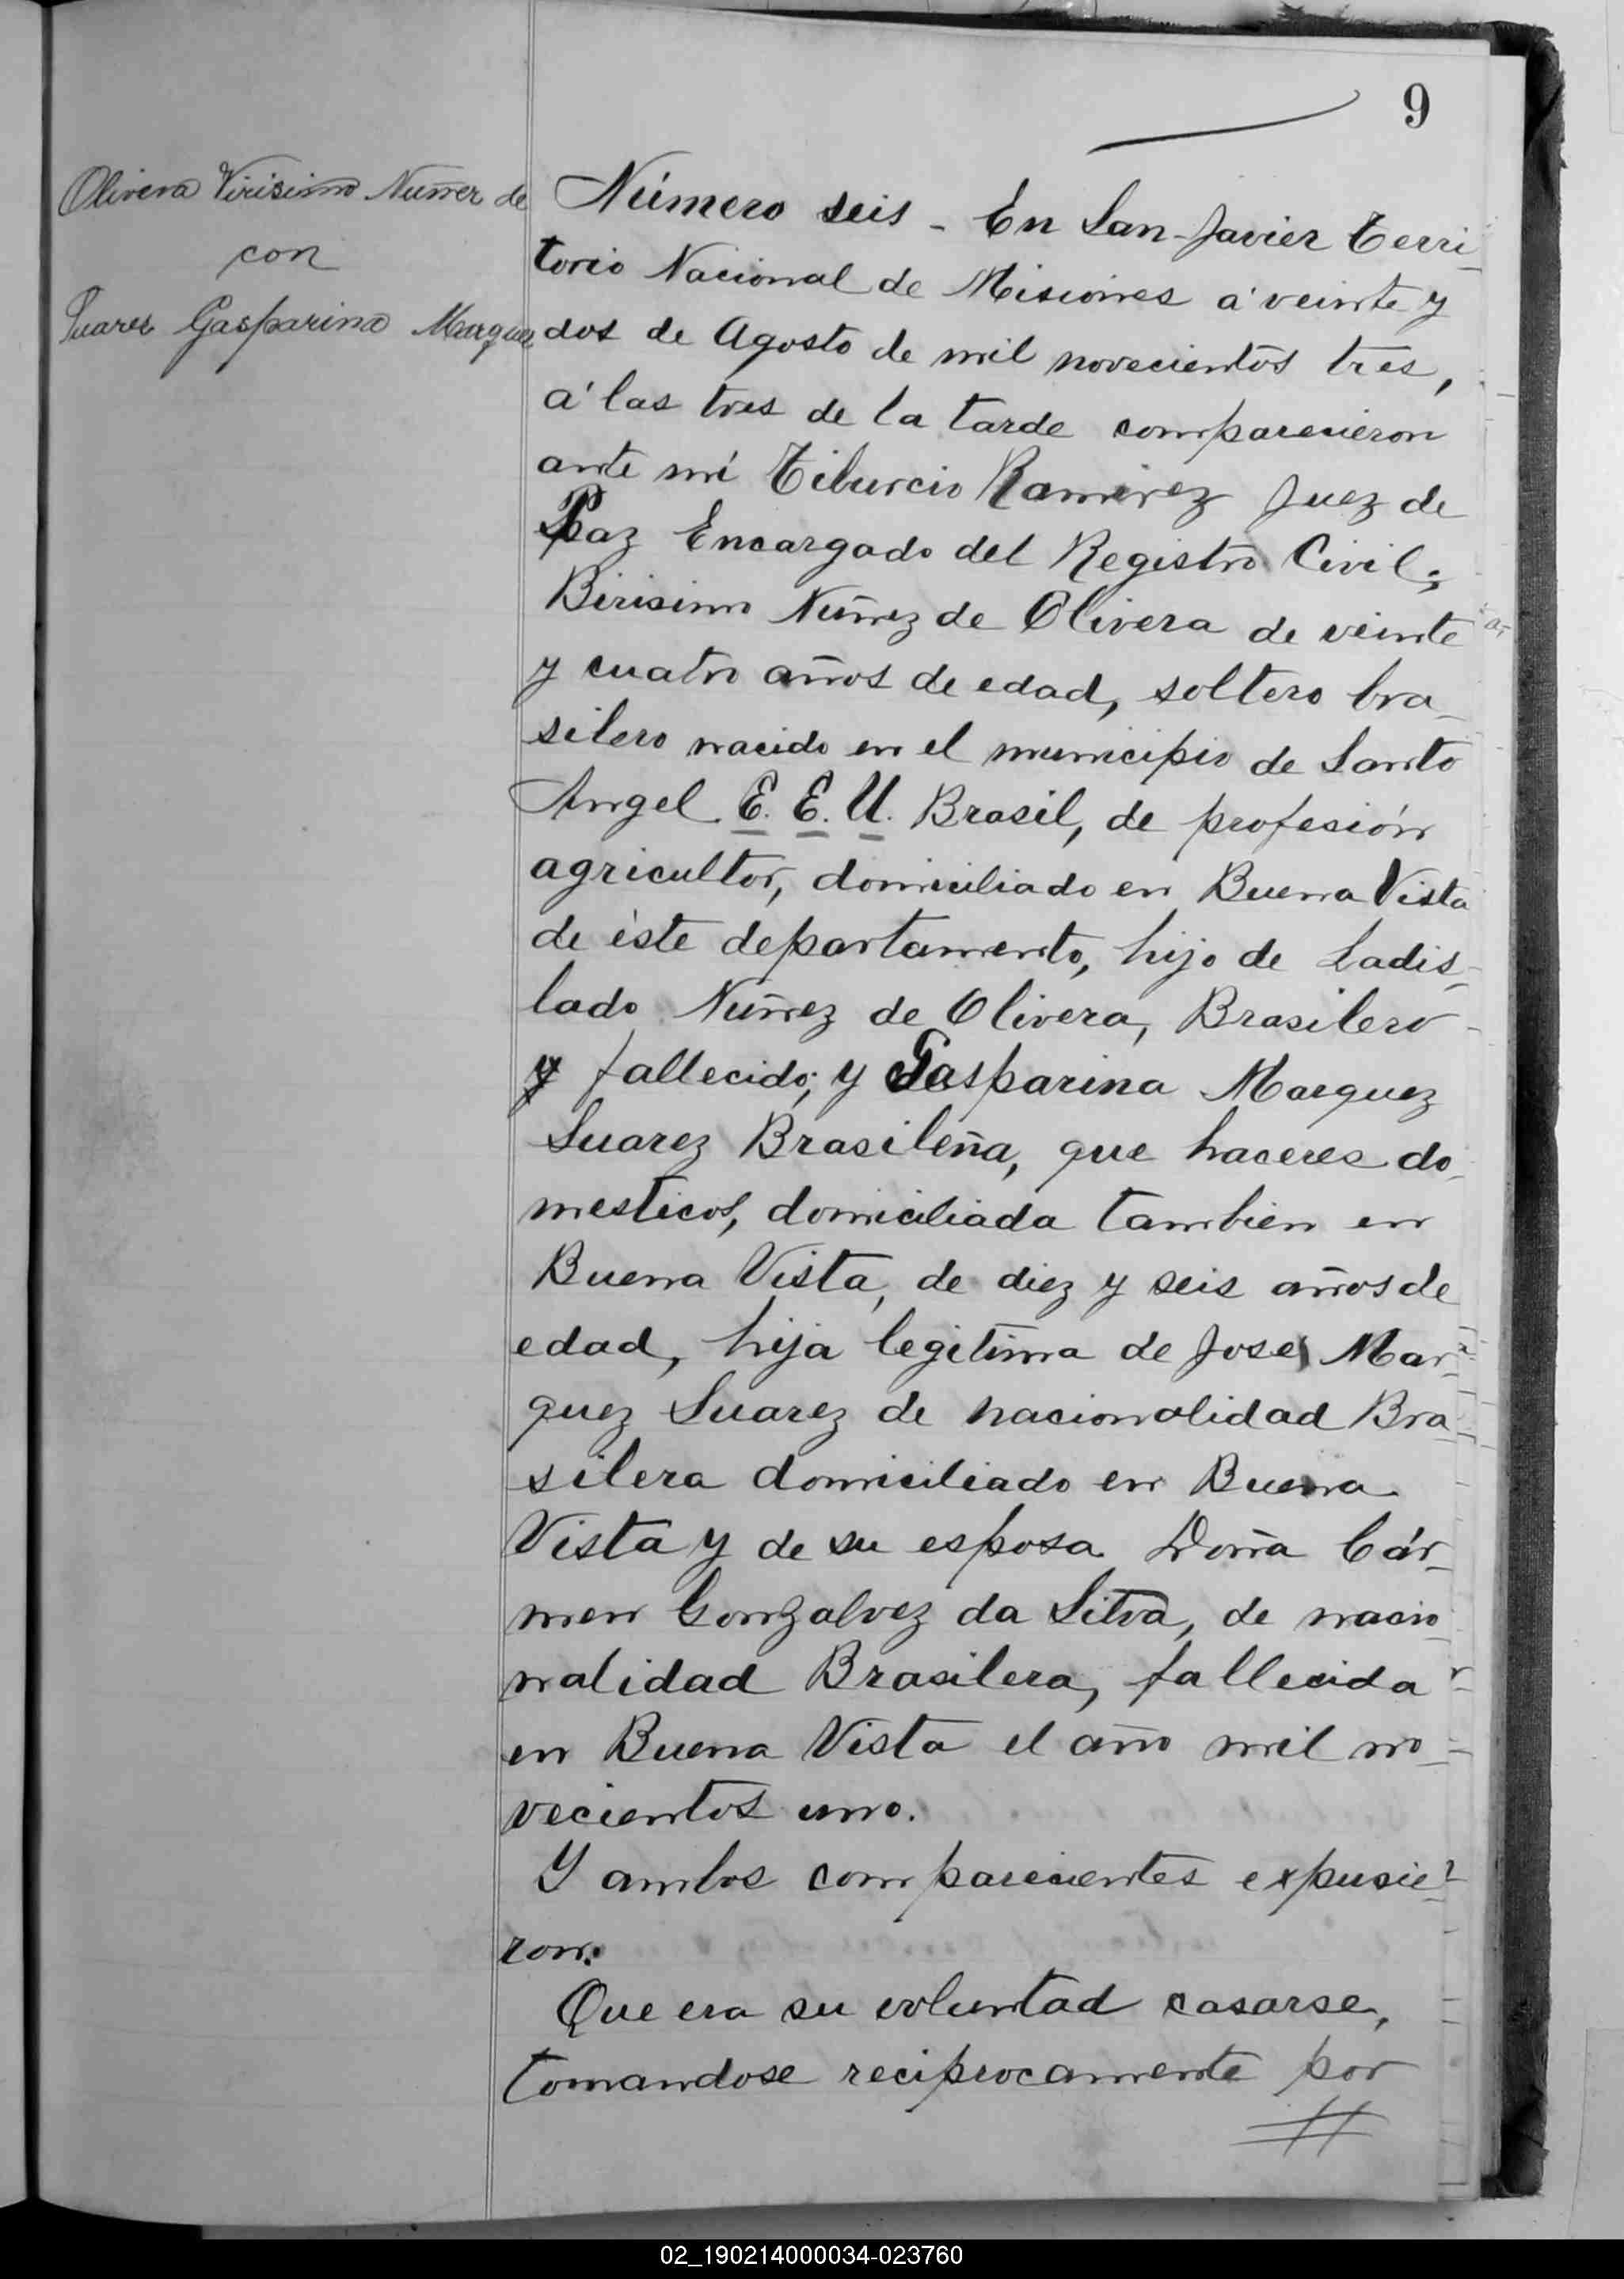 9
Olivera Virisimo Nuñez de
con
Suarez Gasparina Marquez
Número seis - En San-Javier Terri-
torio Nacional de Misiones a' veinte y
dos de Agosto de mil novecientos tres,
a' las tres de la tarde comparecieron
ante mi Tiburcio Ramirez Juez de
Paz Encargado del Registro Civil;
Birisimo Nuñez de Olivera de veinte
y cuatro años de edad, soltero bra-
silero nacido en el municipio de Santo
Angel E. E. U. Brasil, de profesión
agricultor, domiciliado en Buena Vista
de éste departamento, hijo de Ladis-
lado Nuñez de Olivera, Brasilero
y fallecido; y Gasparina Marquez
Suarez Brasileña, que haceres do-
mesticos, domiciliada tambien en
Buena Vista, de diez y seis años de
edad, hija legitima de Jose Mar-
quez Suarez de nacionalidad Bra-
silera domiciliado en Buena
Vista y de su esposa Doña Cár-
men Gonzalvez da Silva, de nacio-
nalidad Brasilera, fallecida
en Buena Vista el año mil no-
vecientos uno.
Y ambos comparecientes expusie-
ron:
Que era su voluntad casarse,
tomandose reciprocamente por
02_190214000034-023760